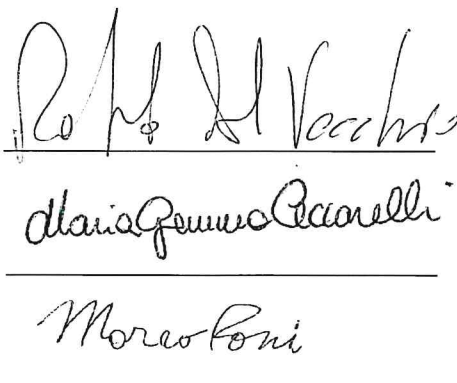 Rodolfo Del Vecchio
Maria Gemma Ceccarelli
Marco Poni